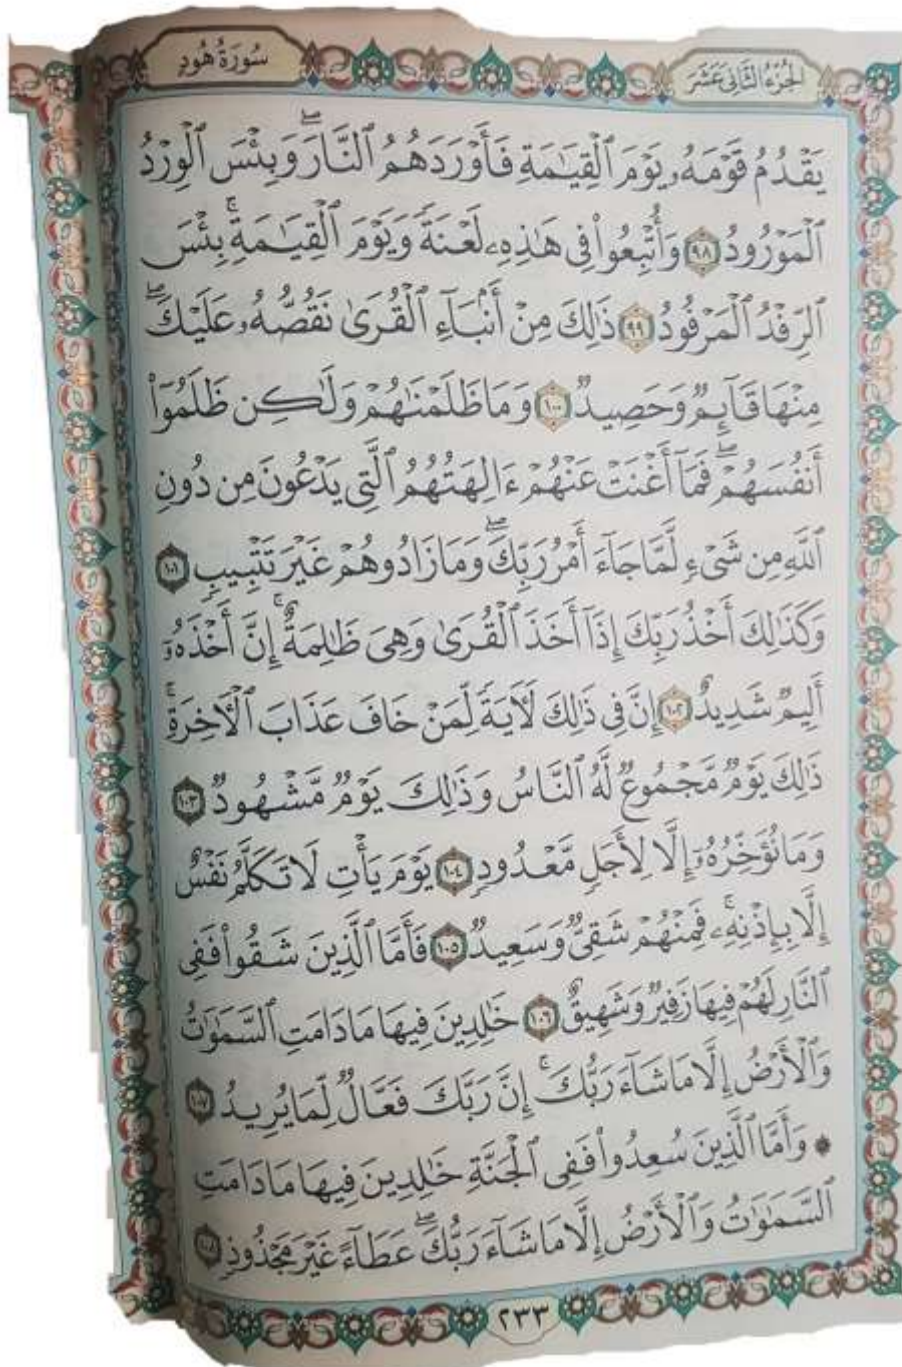 الجُزْءُ الثَّانِي عَشَرَ
سُورَةُ هُودٍ
يَقْدُمُ قَوْمَهُۥ يَوْمَ ٱلْقِيَـٰمَةِ فَأَوْرَدَهُمُ ٱلنَّارَۖ وَبِئْسَ ٱلْوِرْدُ
ٱلْمَوْرُودُ ٩٨ وَأُتْبِعُوا۟ فِى هَـٰذِهِۦ لَعْنَةً وَيَوْمَ ٱلْقِيَـٰمَةِۚ بِئْسَ
ٱلرِّفْدُ ٱلْمَرْفُودُ ٩٩ ذَٰلِكَ مِنْ أَنۢبَآءِ ٱلْقُرَىٰ نَقُصُّهُۥ عَلَيْكَۖ
مِنْهَا قَآئِمٌ وَحَصِيدٌ ١٠٠ وَمَا ظَلَمْنَـٰهُمْ وَلَـٰكِن ظَلَمُوٓا۟
أَنفُسَهُمْۖ فَمَآ أَغْنَتْ عَنْهُمْ ءَالِهَتُهُمُ ٱلَّتِى يَدْعُونَ مِن دُونِ
ٱللَّهِ مِن شَىْءٍ لَّمَّا جَآءَ أَمْرُ رَبِّكَۖ وَمَا زَادُوهُمْ غَيْرَ تَتْبِيبٍ ١٠١
وَكَذَٰلِكَ أَخْذُ رَبِّكَ إِذَآ أَخَذَ ٱلْقُرَىٰ وَهِىَ ظَـٰلِمَةٌۚ إِنَّ أَخْذَهُۥٓ
أَلِيمٌ شَدِيدٌ ١٠٢ إِنَّ فِى ذَٰلِكَ لَـَٔايَةً لِّمَنْ خَافَ عَذَابَ ٱلْـَٔاخِرَةِۚ
ذَٰلِكَ يَوْمٌ مَّجْمُوعٌ لَّهُ ٱلنَّاسُ وَذَٰلِكَ يَوْمٌ مَّشْهُودٌ ١٠٣
وَمَا نُؤَخِّرُهُۥٓ إِلَّا لِأَجَلٍ مَّعْدُودٍ ١٠٤ يَوْمَ يَأْتِ لَا تَكَلَّمُ نَفْسٌ
إِلَّا بِإِذْنِهِۦۚ فَمِنْهُمْ شَقِىٌّ وَسَعِيدٌ ١٠٥ فَأَمَّا ٱلَّذِينَ شَقُوا۟ فَفِى
ٱلنَّارِ لَهُمْ فِيهَا زَفِيرٌ وَشَهِيقٌ ١٠٦ خَـٰلِدِينَ فِيهَا مَا دَامَتِ ٱلسَّمَـٰوَٰتُ
وَٱلْأَرْضُ إِلَّا مَا شَآءَ رَبُّكَۚ إِنَّ رَبَّكَ فَعَّالٌ لِّمَا يُرِيدُ ١٠٧
۞ وَأَمَّا ٱلَّذِينَ سُعِدُوا۟ فَفِى ٱلْجَنَّةِ خَـٰلِدِينَ فِيهَا مَا دَامَتِ
ٱلسَّمَـٰوَٰتُ وَٱلْأَرْضُ إِلَّا مَا شَآءَ رَبُّكَۖ عَطَآءً غَيْرَ مَجْذُوذٍ ١٠٨
٢٣٣